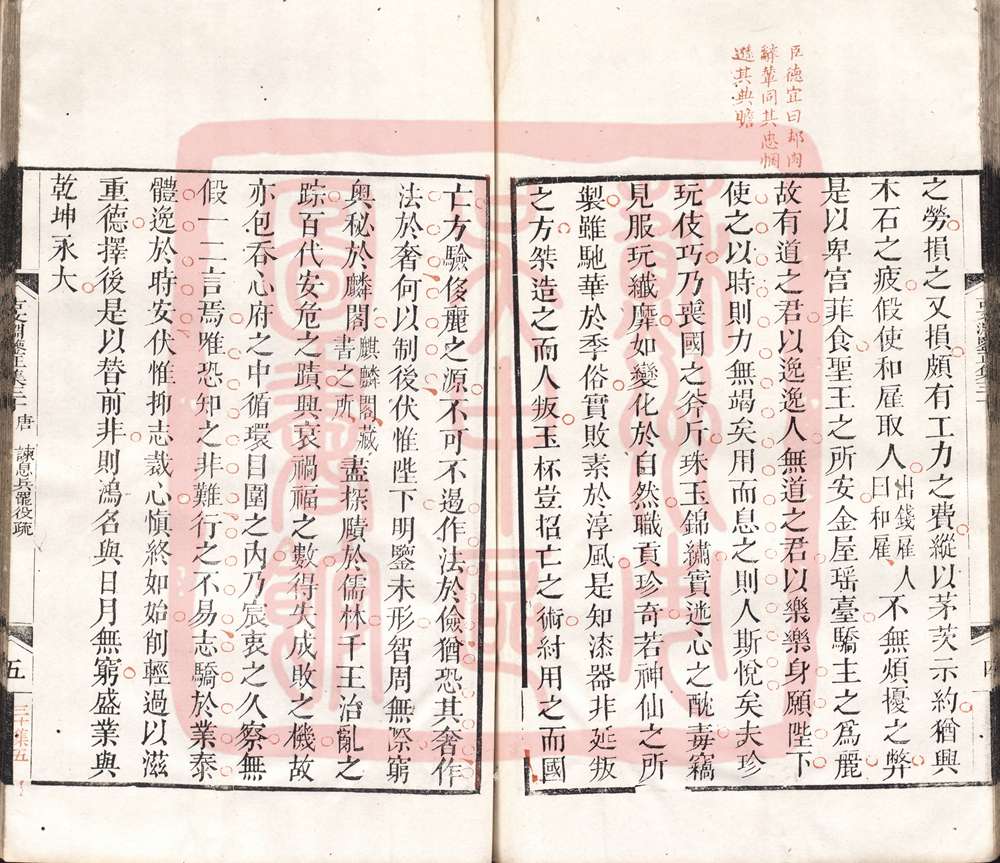 臣德宜曰鄰內
辭輦同其忠悃
遜其典贍
之勞損之又損頗有工力之費縱以茅茨示約猶興
木石之疲假使和雇取人出錢雇人曰和雇不無煩擾之弊
是以卑宮菲食聖王之所安金屋瑤臺驕主之爲麗
故有道之君以逸逸人無道之君以樂樂身願陛下
使之以時則力無竭矣用而息之則人斯悅矣夫珍
玩伎巧乃喪國之斧斤珠玉錦繡實迷心之酖毒竊
見服玩纖靡如變化於自然職貢珍奇若神仙之所
製雖馳華於季俗實敗素於淳風是知漆器非延叛
之方桀造之而人叛玉杯豈招亡之術紂用之而國
亡方驗侈麗之源不可不遏作法於儉猶恐其奢作
法於奢何以制後伏惟陛下明鑒未形智周無際窮
奧秘於麟閣麒麟閣藏書之所盡探賾於儒林千王治亂之
踪百代安危之蹟興衰禍福之數得失成敗之機故
亦包吞心府之中循環目圍之內乃宸衷之久察無
假一二言焉唯恐知之非難行之不易志驕於業泰
體逸於時安伏惟抑志裁心慎終如始削輕過以滋
重德擇後是以替前非則鴻名與日月無窮盛業與
乾坤永大
唐 諫息兵罷役疏
五